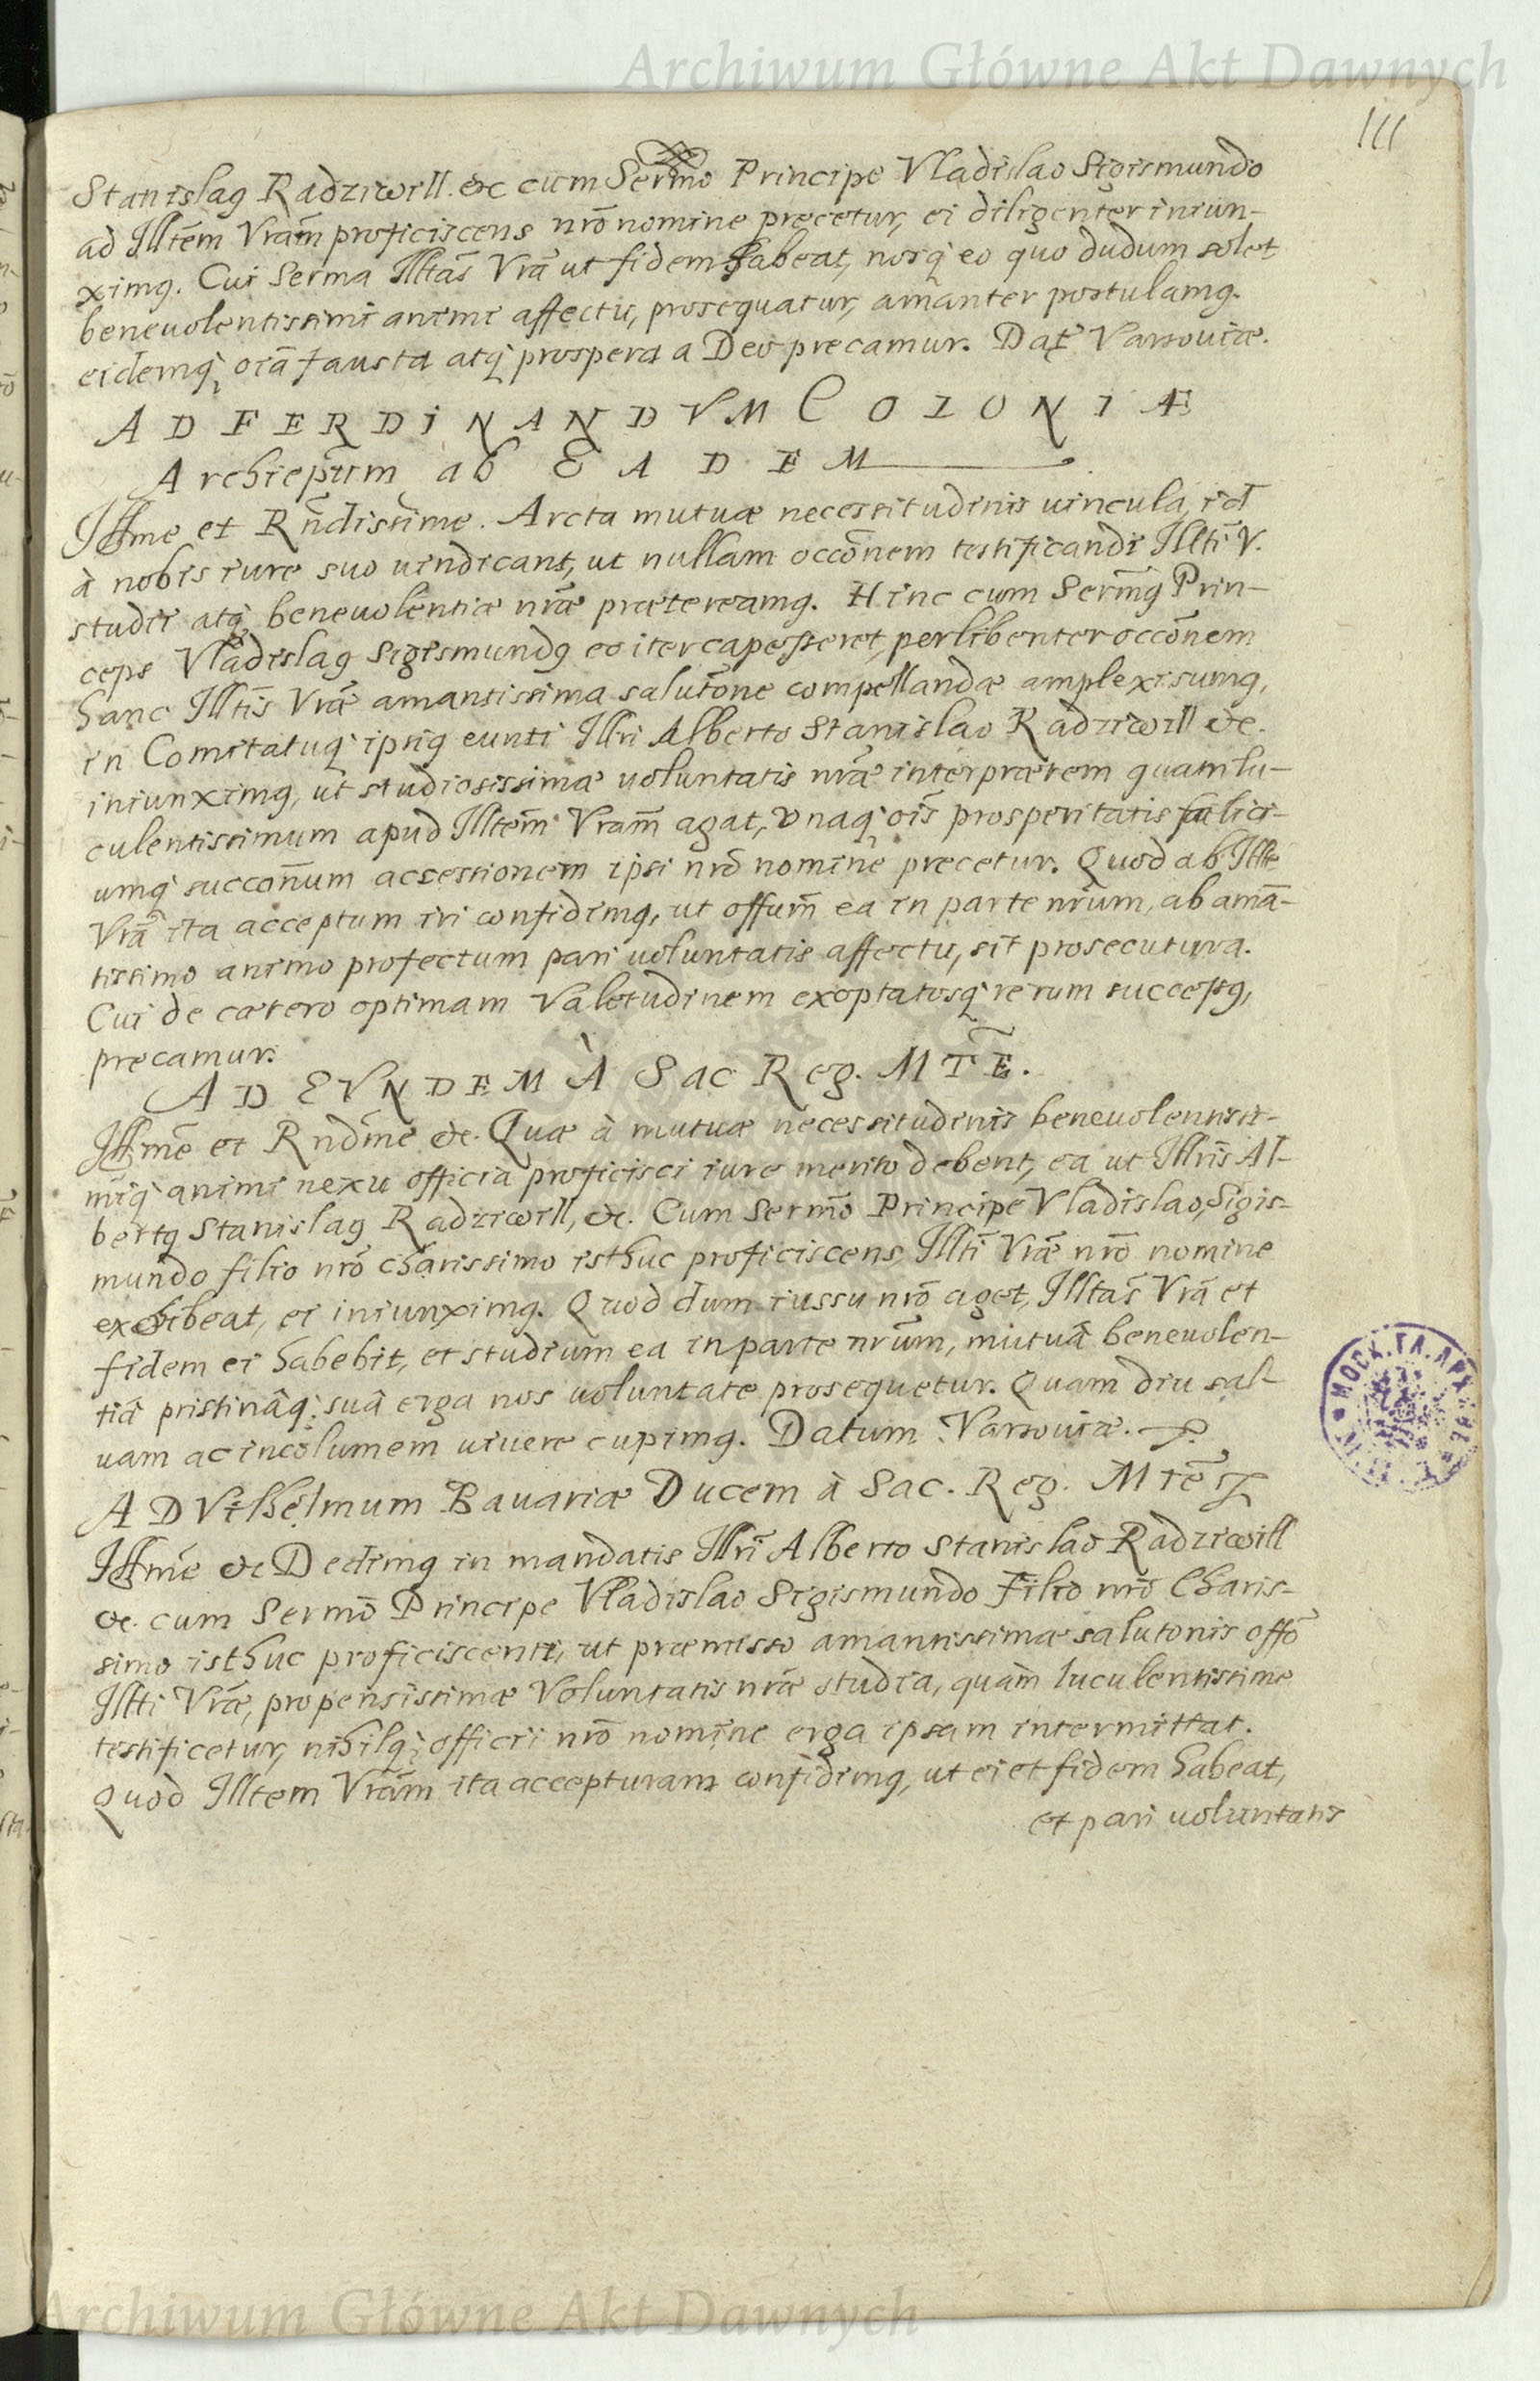 Archiwum Główne Akt Dawnych
111
Stanislaꝰ Radziwill. &c cum Sermo Principe Vladislao Sigismundo
ad Illtem̃ Vram̃ proficiscens nrõ nomine precetur, ei diligenter iniun-
ximꝰ. Cui Serma Illtas̃ Vrã ut fidem habeat, nosq̃ eo quo dudum solet
beneuolentissimi animi affectu, prosequatur, amanter postulamꝰ.
eidemq̃ oiã fausta atq̃ prospera a Deo precamur. Dat̃ Varsouiæ.
AD FERDINANDVM COLONIÆ
Archiepũm ab EADEM
Illme et Rñdissime. Arcta mutuæ necessitudinis uincula, id
à nobis iure suo uindicant, ut nullam occõnem testificandi Illti V.
studii atq̃ beneuolentiæ nræ̃ prætereamꝰ. Hinc cum Sermꝰ̃ Prin-
ceps Vladislaꝰ Sigismundꝰ eo iter capesseret, perlibenter occõnem
hanc Illtis̃ Vræ̃ amantissima salutõne compellandæ amplexi sumꝰ,
in Comitatuq̃ ipsiꝰ eunti Illri Alberto Stanislao Radziwill &c.
iniunximꝰ, ut studiosissimæ uoluntatis nræ̃ interprætem quam lu-
culentissimum apud Illtem̃ Vram̃ agat, unaq̃ ois̃ prosperitatis fælici-
umq̃ succoñum accessionem ipsi nrõ nomine precetur. Quod ab Illte
Vrã ita acceptum iri confidimꝰ, ut offum̃ ea in parte nrum, ab amã-
tissimo animo profectum pari uoluntatis affectu, sit prosecutura.
Cui de cætero optimam Valetudinem exoptatosq̃ rerum successꝰ,
precamur.
AD EVNDEM À Sac Reg. MTẼ.
Illmẽ et Rndmẽ &c. Quæ à mutuæ necessitudinis beneuolentissi-
miq̃ animi nexu officia proficisci iure merito debent, ea ut Illris̃ Al-
bertꝰ Stanislaꝰ Radziwill, &c. Cum Sermõ Principe Vladislao, Sigis-
mundo filio nrõ charissimo isthuc proficiscens, Illti Vræ̃ nrõ nomine
exhibeat, ei iniunximꝰ. Quod dum iussu nrõ aget, Illtas̃ Vrã et
fidem ei habebit, et studium ea in parte nrũm, mutuâ beneuolen-
tiâ pristinâq̃ suâ erga nos uoluntate prosequetur. Quam diu sal-
uam ac incolumem uiuere cupimꝰ. Datum Varsouiæ.
AD Vilhelmum Bauariæ Ducem à Sac. Reg. Mtẽ
Illmẽ &c Dedimꝰ in mandatis Illri Alberto Stanislao Radziwill
&c. cum Sermõ Principe Vladislao Sigismundo Filio nrõ Charis-
simo isthuc proficiscenti, ut præmisso amantissimæ salutonis offõ
Illti Vræ̃, propensissimæ Voluntatis nræ̃ studia, quàm luculentissime
testificetur, nihilq̃ officii nrõ nomine erga ipsam intermittat.
Quod Illtem Vrãm ita accepturam confidimꝰ, ut ei et fidem habeat,
et pari uoluntatis
МОСК. ГЛ. АРХ
Archiwum Główne Akt Dawnych